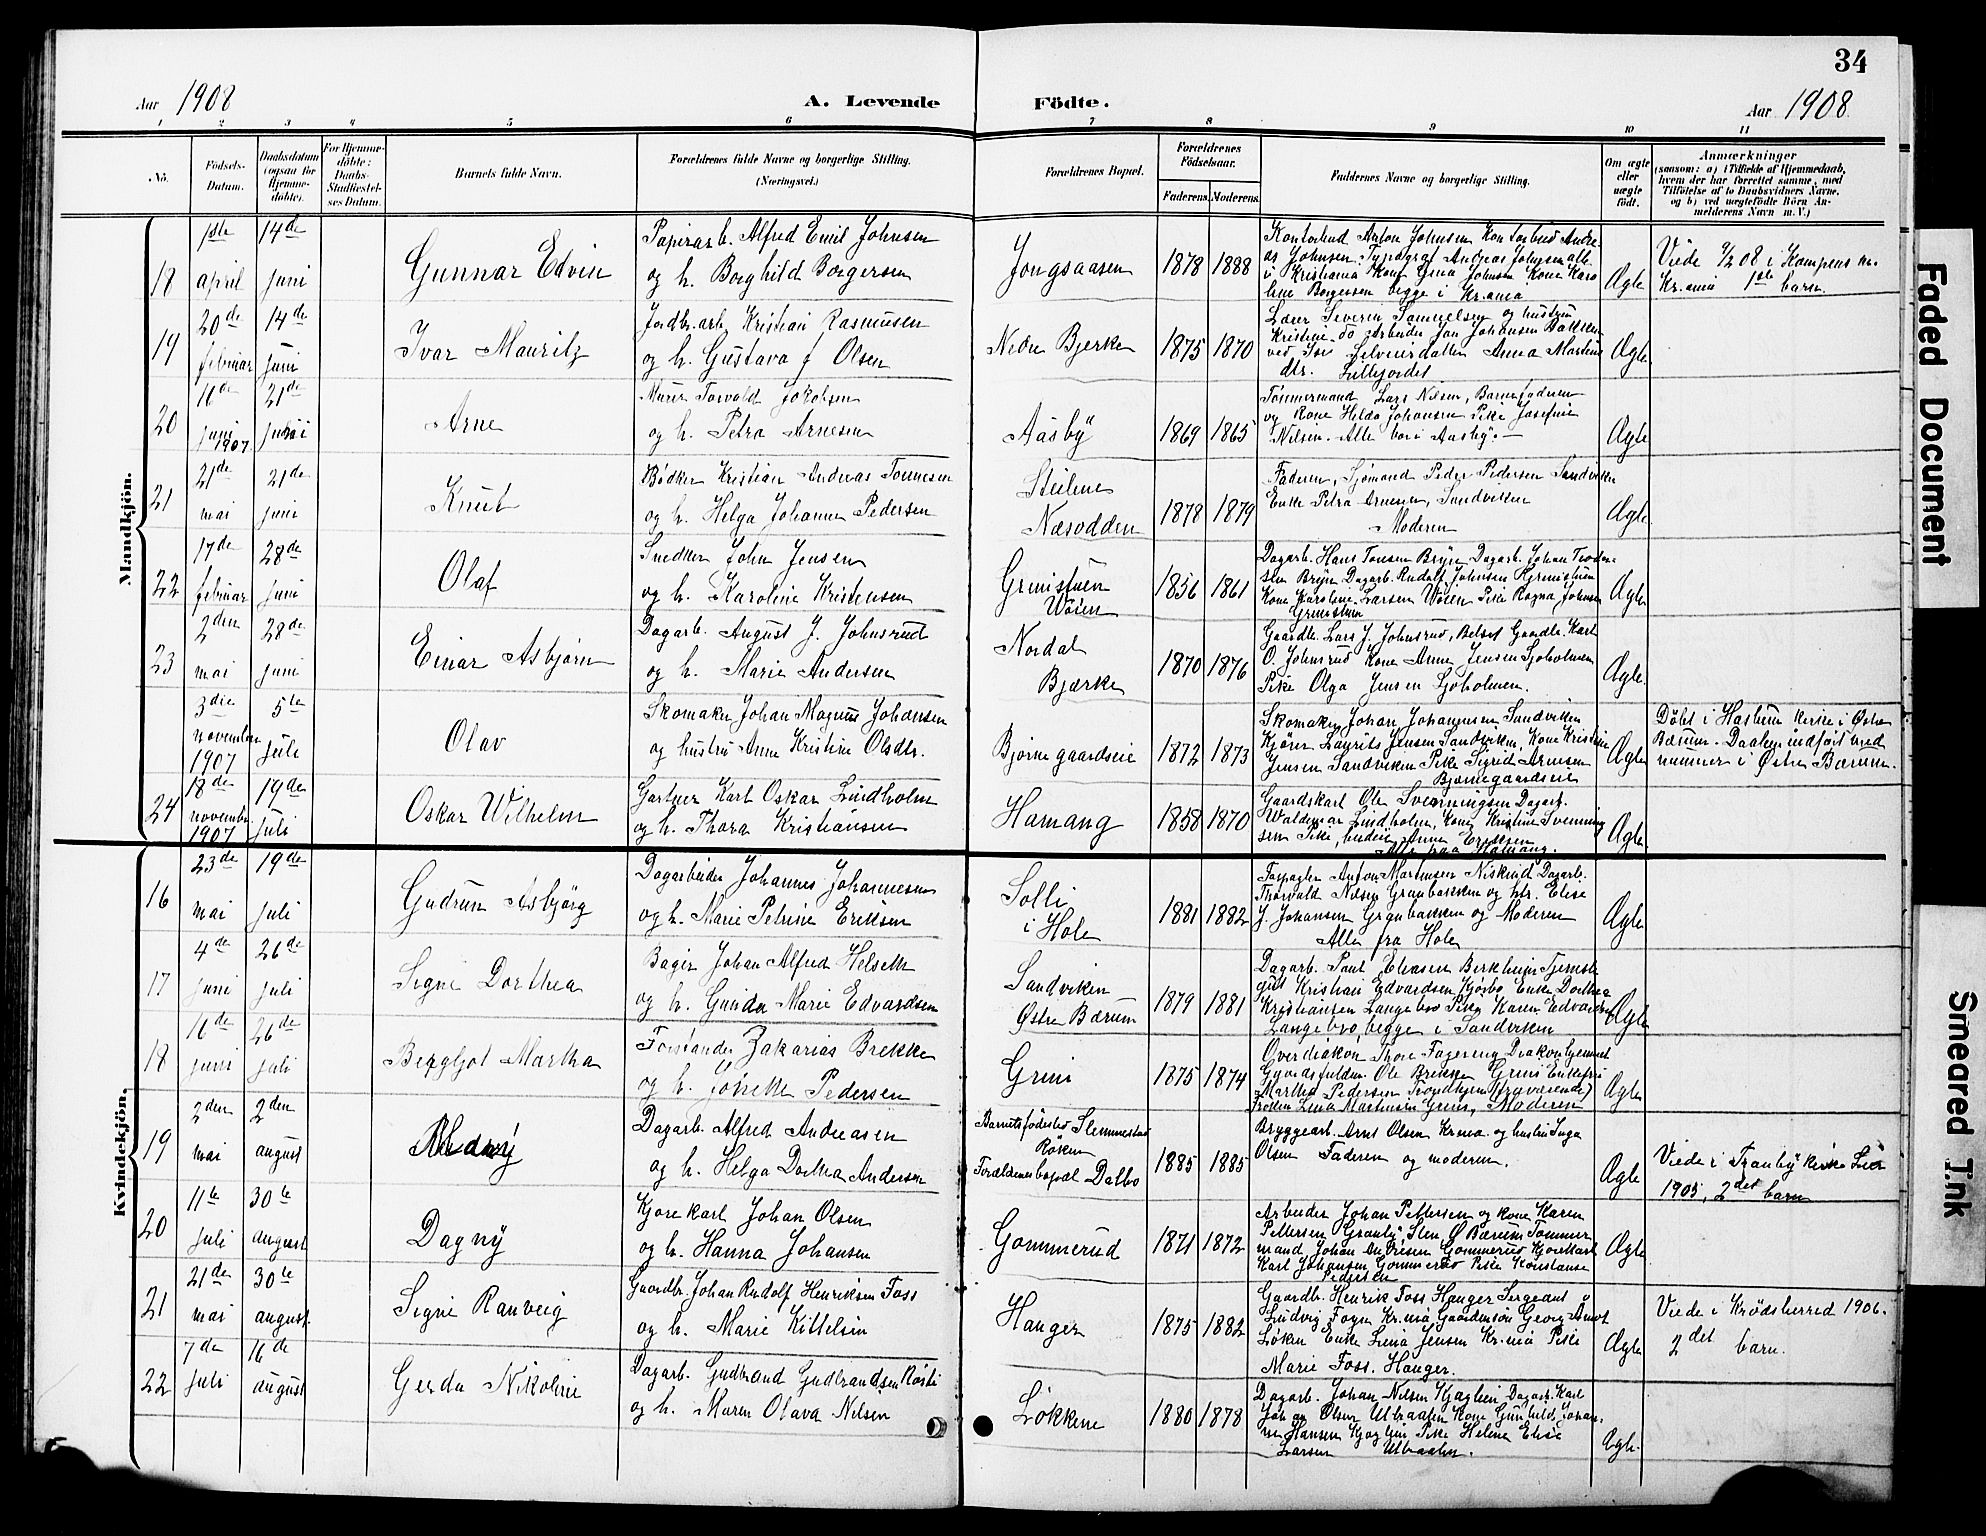 34
Aar 1908 A. Levende Födte. Aar 1908.
1 2 3 4 5 6 7 8 9 10 11
No. Födsels-Datum. Daabsdatum (ogsaa for Hjemmedöbte). For Hjemmedöbte: Daabs-Stadfæstelses Datum. Barnets fulde Navn. Forældrenes fulde Navne og borgerlige Stilling. (Næringsvei.) Forældrenes Bopæl. Forældrenes Födselsaar. Faderens. Moderens. Faddernes Navne og borgerlige Stilling. Om ægte eller uægte födt. Anmærkninger (saasom: a) i Tilfælde af Hjemmedaab, hvem der har forrettet samme, med Tilföielse af to Daabsvidners Navne, og b) ved uægtefödte Börn Anmelderens Navn m. V.)
Mandkjön.
18 1ste april 14de juni Gunnar Edvin Papirarb. Alfred Emil Johnsen
og h. Borghild Borgersen Jongsaasen 1878 1888 Kontorbud Anton Johnsen Kontorbud Andreas Johnsen
i Kristiania Kone Lina Johnsen Kone Karoline Borgersen begge i Kr.ania Ægte Viede 1/2 08 i Kampens m. Kr.ania 1ste barn.
19 20de februar 14de juni Ivar Mauritz Jordbr.arb. Kristian Rasmussen
og h. Gustava f Olsen Nedre Bjerke 1875 1870 Severin Samuelsen og hustru
Kristine do Arbeider Jon Johansen Bakken
Anna Martinsdtr. Lillejordet Ægte
20 16de juni 1907 21de juni Arne Murer Torvald Jakobsen
og h. Petra Arnesen Aasby 1869 1865 Tømmermand Lars Nilsen, Barnefaderen
og kone Helda Johansen Pike Josefine
Nilsen. Alle bor i Aasby. Ægte
21 21de mai 21de juni Knut Bødker Kristian Andreas Tonnesen
og h. Helga Johanne Pedersen Steilene
Næsodden 1878 1879 Faderen, Sjømand Peder Pedersen Sandviken
Enke Petra Arnesen, Sandviken
Moderen Ægte
22 17de februar 28de juni Olaf Snedker John Jensen
og h. Karoline Kristensen Grinistuen
Wøien 1856 1861 Dagarb. Hans Tonsen Bryn Dagarb. Johan
Bryn Dagarb. Rudolf Johnsen
Kone Karoline Larsen Wøien Pike Ragna Johnsen
Grinistuen Ægte
23 2den mai 28de juni Einar Asbjørn Dagarb. August J. Johnsrud
og h. Marie Andersen Nordal
Bjærke 1870 1876 Gaardb. Lars J. Johnsrud, Belset Gaardb. Karl
O. Johnsrud Kone Anne Jensen Sjoholmen
Pike Olga Jensen Sjoholmen. Ægte.
3die november 1907 5te juli Olav Skomaker Johan Magnus Johansen
og hustru Anne Kristine Olsdtr. Bjørnegaardseie 1872 1873 Skomaker Johan Johannesen Sandviken
Kjører Laurits Jensen Sandviken, Kone Kristine
Jensen Sandviken Pike Sigrid Arnesen
Bjørnegaardseie Ægte Døbt i Haslum kirke i Østre
Bærum. Daaben indført med
nummer i Østre Bærum.
24 18de november 1907 19de juli Oskar Wilhelm Gartner Karl Oskar Lindholm
og h. Thora Kristiansen Hamang 1858 1870 Gaardskarl Ole Svenningsen Dagarb.
Waldemar Lindholm, Kone Kristine Svenningsen
Pike, Anne Eriksen
Alle fra Hamang. Ægte
Kvindekjön.
16 23de mai 19de juli Gudrun Asbjørg Dagarbeider Johannes Johannesen
og h. Marie Petrine Eriksen Solli
i Hole 1881 1882 Forpagter Anton Martinsen Dagarb.
Thorvald Nilsen Granbakken og htr. Elise
J. Johansen Granbakken og Moderen
Alle fra Hole Ægte
17 4de juni 26de juli Signe Dorthea Bager Johan Alfred Helseth
og h. Gunda Marie Edvardsen Sandviken
Østre Bærum 1879 1881 Dagarb. Paul Eliasen Berkheim
Kristian Edvardsen Kjørbo Enke Dorthea
Kristiansen Langebro Pike Karen Edvardsen
Langebro, begge i Sandviken Ægte
18 16de juni 26de juli Bergljot Martha Forstander Zakarias Brekke
og h. Pedersen Grini 1875 1874 Overdiakon Thore Fagereng Diakonhjemmet
Ole Brekke Grini Enkefru
Martha Pedersen Trondhjem (fraværende)
Frøken Lina Martinsen Grini, Moderen Ægte
19 2den mai 2den august Dagarb. Alfred Andreasen
og h. Helga Dorthea Andersen Barnets fødested Slemmestad
Røken
Forældrenes bopæl Dalbo 1885 1885 Bryggearb. Arnt Olsen Kr.nia og hustru Inga
Olsen Faderen og moderen. Ægte Viede i Tranby kirke Lier
1905, 2det barn
20 11te juli 30te august Dagny Kjørekarl Johan Olsen
og h. Hanna Johansen Gommerud 1871 1872 Arbeider Johan Pettersen og kone Karen
Pettersen Granby Ø Bærum Tømmermand
Johan Gommerud Kjørekarl
Karl Johansen Gommerud Pike Konstanse
Pedersen Ægte
21 21de mai 30te august. Signe Ranveig Gaardbr. Johan Rudolf Henriksen Foss
og h. Marie Kittelsen Hauger 1875 1882 Gaardbr. Henrik Foss Hauger Sergeant
Ludvig Kr.nia Georg
Løken Enke Lina Jensen Kr.nia Pike
Marie Foss. Hauger. Ægte Viede i Krødsherred 1906.
2det barn.
22 7de juli 16de august Gerda Nikoline Dagarb. Gudbrand Gudbrandsen
og h. Maren Olava Nilsen Løkkene 1880 1878 Dagarb. Johan Nilsen Kjaglien Dagarb. Karl
Johan Olsen Utbraaten Kone Gunhild
Hansen Kjaglien Pike Helene Elise
Larsen Utbraaten. Ægte.
Faded Document
Smeared Ink